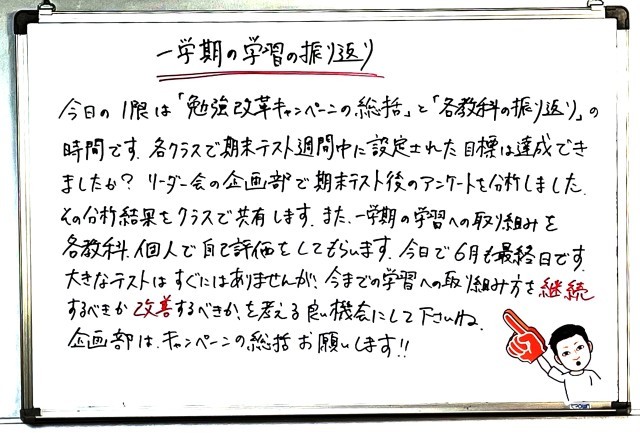 一学期の学習の振り返り
今日の1限は「勉強改革キャンペーンの総括」と「各教科の振り返り」の
時間です。各クラスで期末テスト週間中に設定された目標は達成でき
ましたか？リーダー会の企画部で期末テスト後のアンケートを分析しました。
その分析結果をクラスで共有します。また、一学期の学習への取り組みを
各教科、個人で自己評価をしてもらいます。今日で6月も最終日です。
大きなテストはすぐにはありませんが、今までの学習への取り組み方を継続
するべきか改善するべきか、を考える良い機会にして下さいね。
企画部は、キャンペーンの総括お願いします!!